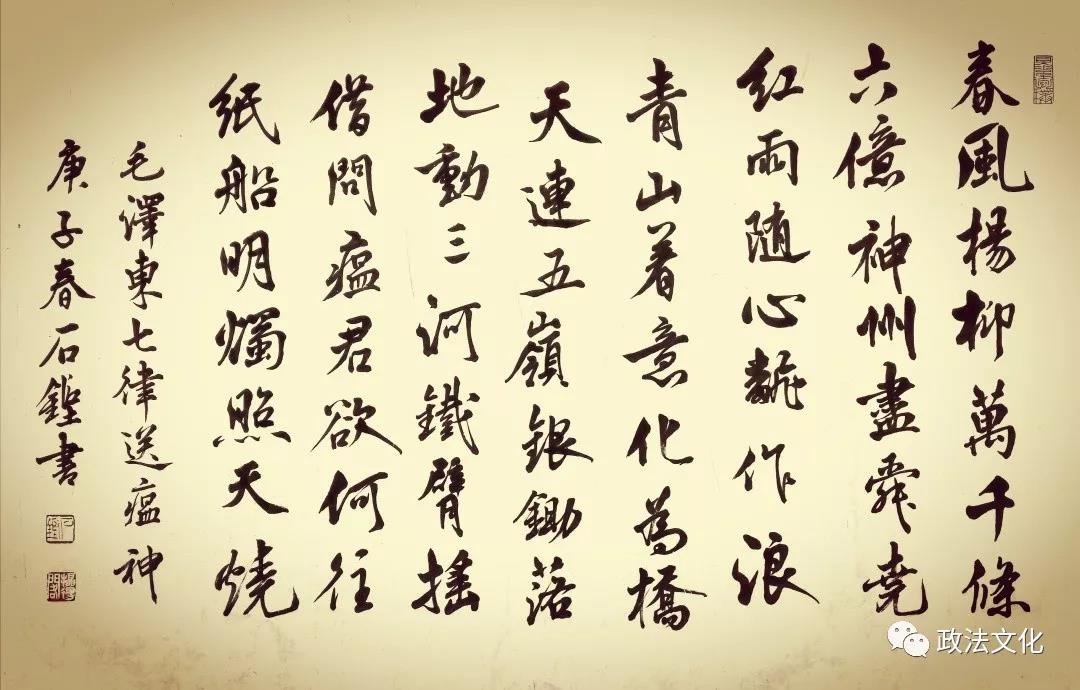 春風楊柳萬千條
六億神州盡舜堯
紅雨随心翻作浪
青山着意化為橋
天連五嶺銀鋤落
地動三河鐵臂摇
借問瘟君欲何往
紙船明燭照天燒
毛澤東七律送瘟神
庚子春石鏗書
政法文化